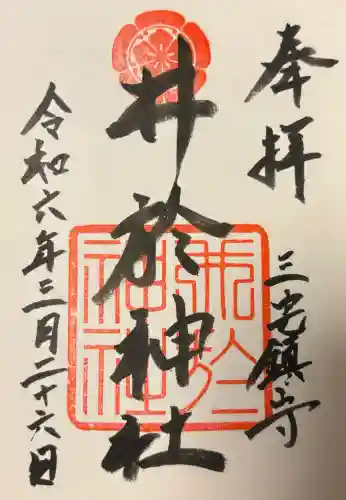 奉拝
三宅鎮守
井於神社
井於神社
令和六年三月二十六日